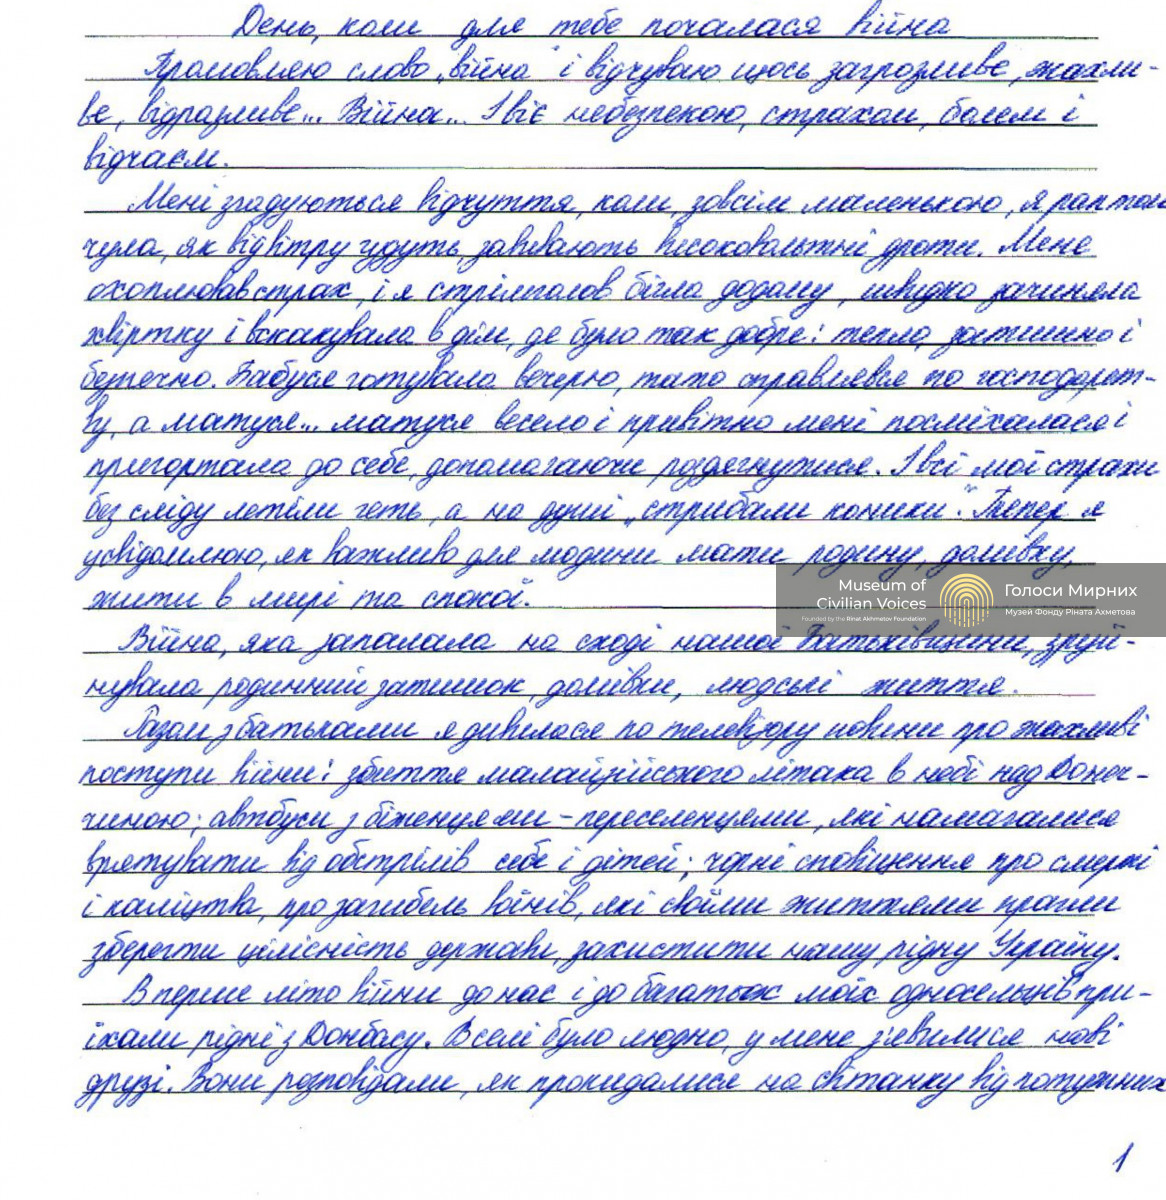 День, коли для тебе почалася війна
Промовляю слово „війна" і відчуваю щось загрозливе, жахли-
ве, відразливе... Війна... І віє небезпекою, страхом, болем і
відчаєм.
Мені згадуються відчуття, коли, зовсім маленькою, я раптом
чула, як від вітру гудуть, завивають високовольтні дроти. Мене
охоплював страх, і я стрімголов бігла додому, швидко зачиняла
хвіртку і вскакувала в дім, де було так добре: тепло, затишно і
безпечно. Бабуся готувала вечерю, тато справлявся по господарст-
ву, а матуся... матуся весело і привітно мені посміхалася і
пригортала до себе, допомагаючи роздягнутися. І всі мої страхи
без сліду летіли геть, а на душі „стрибали коники". Тепер я
усвідомлюю, як важливо для людини мати родину, домівку,
жити в мирі та спокої.
Museum of
Civilian Voices
Founded by the Rinat Akhmetov Foundation
Голоси Мирних
Музей Фонду Ріната Ахметова
Війна, яка запалала на сході нашої Батьківщини, зруй-
нувала родинний затишок, домівки, людські життя.
Разом з батьками я дивилася по телевізору новини про жахливі
поступи війни: збиття малайзійського літака в небі над Донеч-
чиною; автобуси з біженцями-переселенцями, які намагалися
врятувати від обстрілів себе і дітей; чорні сповіщення про смерті
і каліцтва, про загибель воїнів, які своїми життями прагли
зберегти цілісність держави, захистити нашу рідну Україну.
В перше літо війни до нас і до багатьох моїх односельців при-
їхали рідні з Донбасу. В селі було людно, у мене з'явилися нові
друзі. Вони розповідали, як прокидалися на світанку від потужних
1